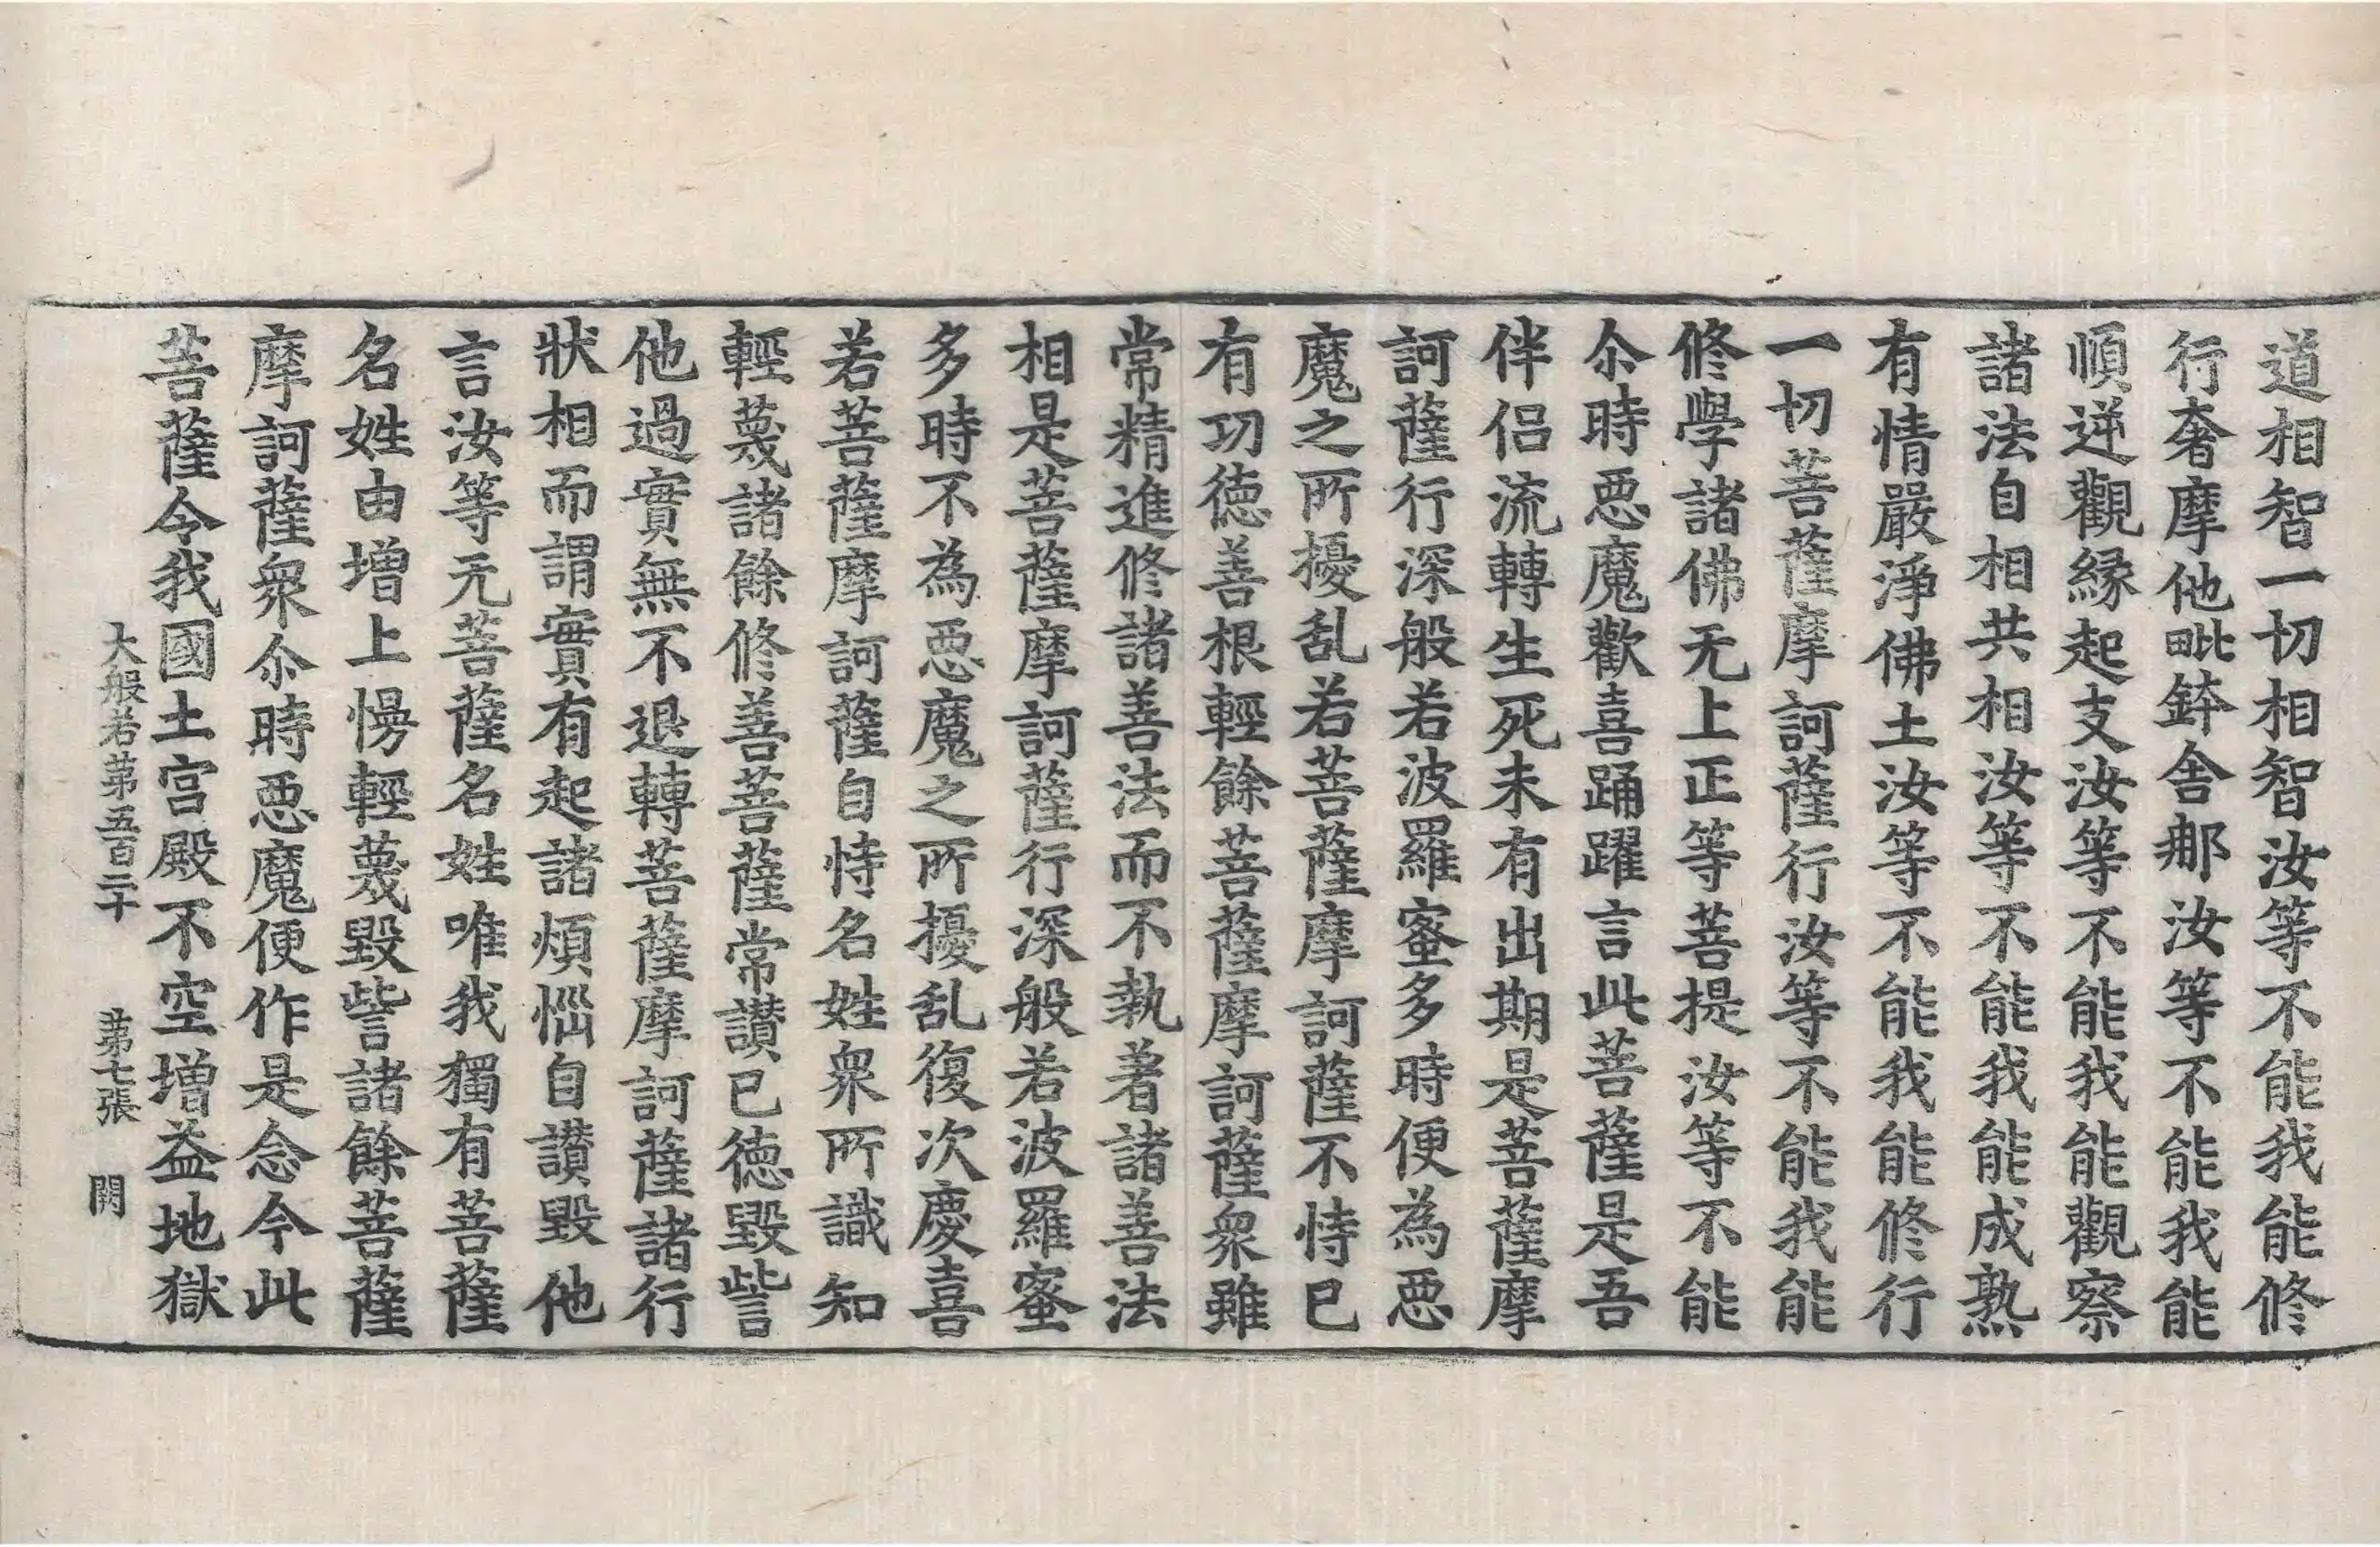 道相智一切相智汝等不能我能修
行奢摩他毗鉢舍那汝等不能我能
順逆觀緣起支汝等不能我能觀察
諸法自相共相汝等不能我能成熟
有情嚴淨佛土汝等不能我能修行
一切菩薩摩訶薩行汝等不能我能
修學諸佛无上正等菩提汝等不能
尒時惡魔歡喜踊躍言此菩薩是吾
伴侶流轉生死未有出期是菩薩摩
訶薩行深般若波羅蜜多時便為惡
魔之所擾乱若菩薩摩訶薩不恃已
有功德善根輕餘菩薩摩訶薩衆雖
常精進修諸善法而不執著諸善法
相是菩薩摩訶薩行深般若波羅蜜
多時不為惡魔之所擾乱復次慶喜
若菩薩摩訶薩自恃名姓衆所識知
輕蔑諸餘修善菩薩常讚已德毀呰
他過實無不退轉菩薩摩訶薩諸行
狀相而謂實有起諸煩惱自讚毀他
言汝等无菩薩名姓唯我獨有菩薩
名姓由增上慢輕蔑毀呰諸餘菩薩
摩訶薩衆尒時惡魔便作是念今此
菩薩令我國土宮殿不空增益地獄
大般若第五百二十 第七張 闕